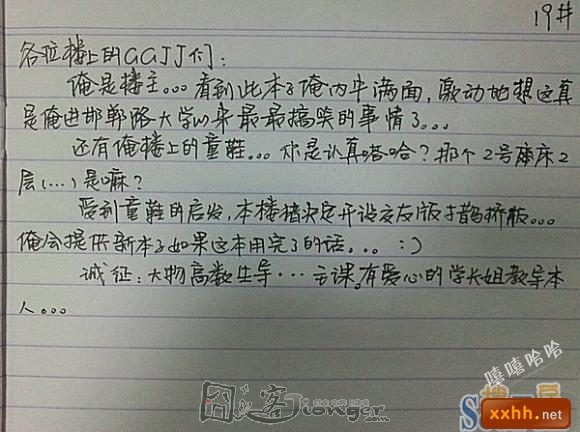 19#
各位楼上的GGJJ们：
俺是楼主。。。看到此本子俺内牛满面，激动地想这真
是俺进邯郸路大学以来最最搞笑的事情了。。。
还有俺楼上的童鞋。。。你是认真嗒哈？那个2号床2
层(…)是嘛？
受到童鞋的启发，本楼猪决定开设交友版才鹊桥版。。。
俺会提供新本子如果这本用完了的话。。。：)
诚征：大物高数生导…云课。有爱心的学长姐教导本
人。。。
嘻嘻哈哈
囧客
Jionger.com
xxhh.net